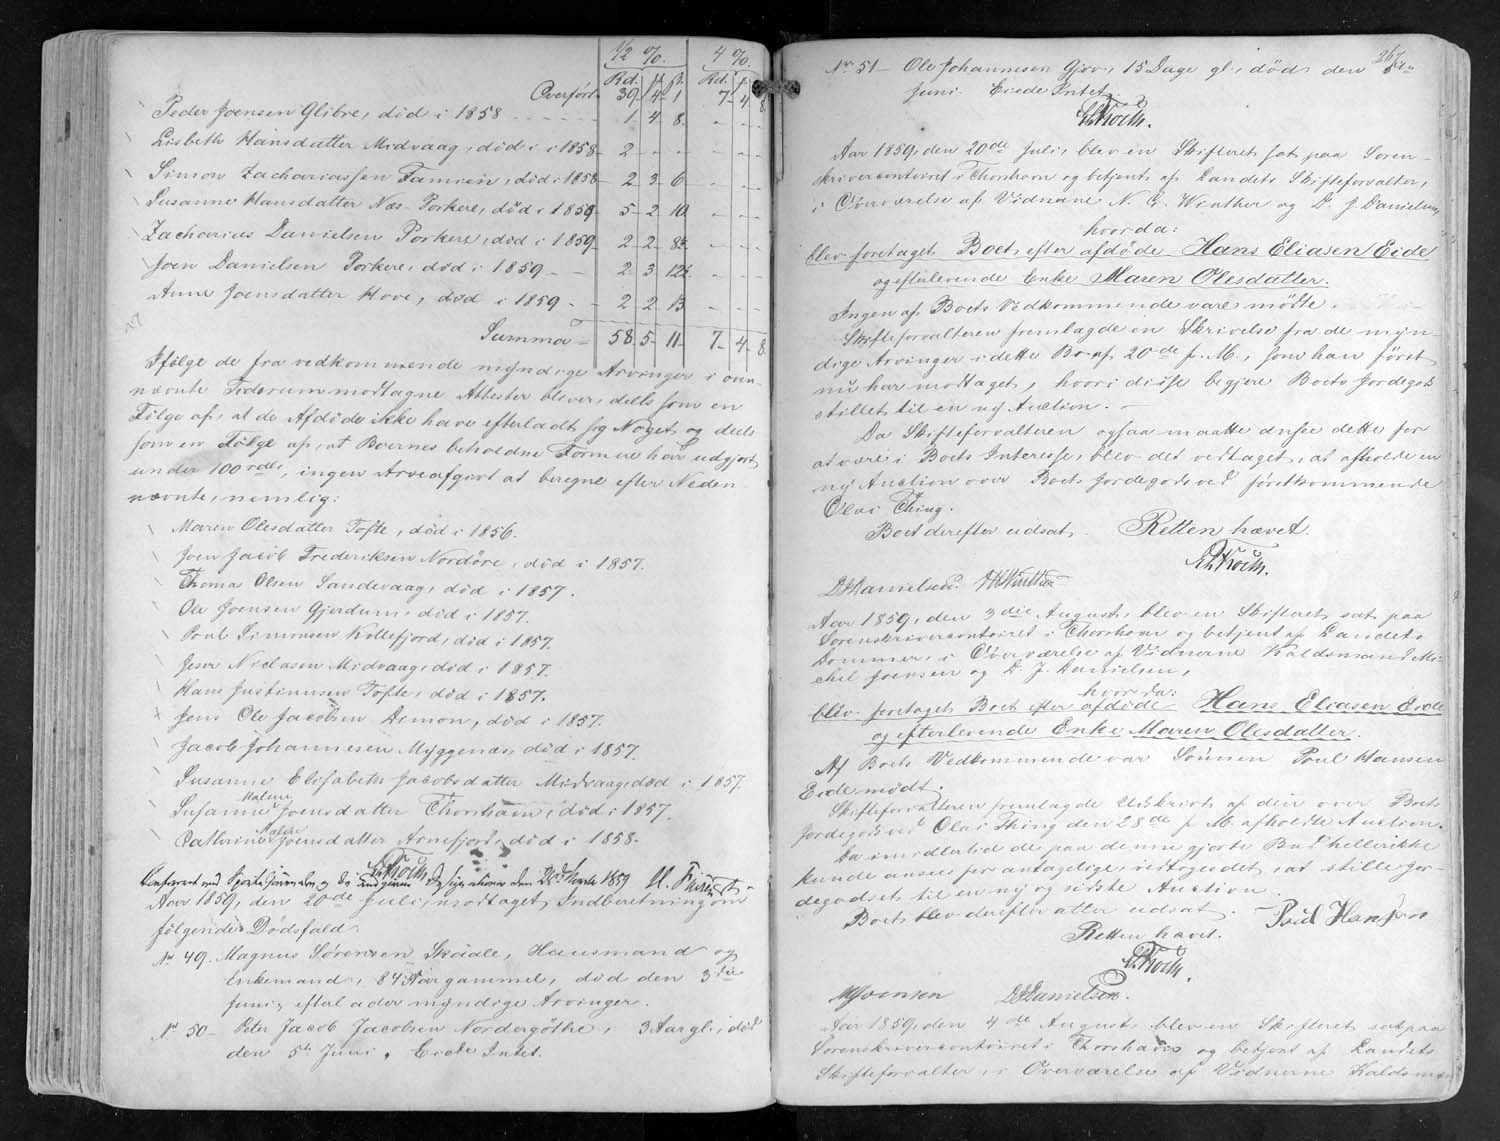 1/2 %. 4 %.
Rd. Rd.
Overført 39 4 1 7 4 8
Peder Joensen Glibre, død i 1858 1 4 8
Lisbeth Hansdatter Midvaag, død i 1858 2
Simon Zachariassen Famien, død i 1858 2 3 6
Susanne Hansdatter Næs Porkere, død i 1859 5 2 10
Zacharias Danielsen Porkere, død i 1859 2 2 8
Joen Danielsen Porkere, død i 1859 2 3 12
Anne Joensdatter Hove, død i 1859 2 2 13
Summa 58 5 11 7 4 8
Ifølge de fra vedkommende myndige Arvinger i oven-
nævnte Tiderum modtagne Attester bliver, deels som en
Følge af, at de Afdøde ikke have efterladt sig Noget, og deels
som en Følge af, at Boernes beholdne Formue har udgjort
under 100 rdlr, ingen Arveafgivt at beregne efter Neden-
nævnte, nemlig:
Maren Olesdatter Tofte, død i 1856.
Joen Jacob Frederiksen Nordøre, død i 1857.
Thoma Olsen Sandevaag, død i 1857.
Ole Joensen Gjerdum, død i 1857.
Poul Simonsen Kollefjord, død i 1857.
Jesper Niclasen Midvaag, død i 1857.
Hans Justinussen Tofte, død i 1857.
Jens Ole Jacobsen Dimon, død i 1857.
Jacob Johannesen Myggenæs, død i 1857.
Susanne Elisabeth Jacobsdatter Midvaag, død i 1857.
Malene
Susanne Joensdatter Thorshavn, død i 1857.
Cathrine Joensdatter Arnefjord, død i 1858.
HTroth.
Confereret med den 1859
Aar 1859, den 20de Juli, modtaget Indberetning om
følgende Dødsfald:
No 49. Magnus Sørensen Skaale, Huusmand og
Enkemand, 84 Aar gammel, død den 3die
Juni, efterlader myndige Arvinger.
No 50 Peter Jacob Jacobsen Nordregøthe, 3 Aar gl., død
den 5te Juni. Eiede Intet.
267
No 51 Ole Johannesen Gjov, 15 Dage gl., død den
Juni. Eiede Intet.
HTroth.
Aar 1859, den 20de Juli, blev en Skifteret sat paa Soren-
skrivercontoiret i Thorshavn og betjent af Landets Skifteforvalter,
i Overværelse af Vidnerne N. C. Winther og D. J. Danielsen,
hvorda:
blev foretaget Boet efter afdøde Hans Eliasen Eide
og efterlevende Enke Maren Olesdatter.
Ingen af Boets Vedkommende vare mødte.
Skifteforvalteren fremlagde en Skrivelse fra de myn-
dige Arvinger i dette Bo af 20de f. M., som han først
nu har modtaget, hvori disse begjere Boets Jordegods
stillet til en ny Auction.
Da Skifteforvalteren ogsaa maatte ansee dette for
at være i Boets Interesse, blev det vedtaget, at afholde en
ny Auction over Boets Jordegods ved førstkommende
Olai Thing.
Boet derefter udsat. Retten hævet.
HTroth.
DJDanielsen. NCWinther
Aar 1859, den 3die August, blev en Skifteret sat paa
Sorenskrivercontoiret i Thorshavn og betjent af Landets
Dommer, i Overværelse af Vidnerne Kaldsmand Mi-
chel Joensen og D. J. Danielsen,
hvorda:
blev foretaget Boet efter afdøde Hans Eliasen Eide
og efterlevende Enke Maren Olesdatter.
Af Boets Vedkommende var Sønnen Poul Hansen
Eide mødt.
Skifteforvalteren fremlagde Udskrivt af den over Boets
Jordegods ved Olai Thing den 28de f. M. afholdte Auction.
Da imidlertid de paa denne gjorte Bud hellerikke
kunde ansees for antagelige, vedtoges det, at stille Jor-
degodset til en ny og sidste Auction.
Boet blev derefter atter udsat. Poul Hansen
Retten hævet.
HTroth.
MJoensen DJDanielsen.
Aar 1859, den 4de August, blev en Skifteret sat paa
Sorenskrivercontoiret i Thorshavn og betjent af Landets
Skifteforvalter, i Overværelse af Vidnerne Kaldsman